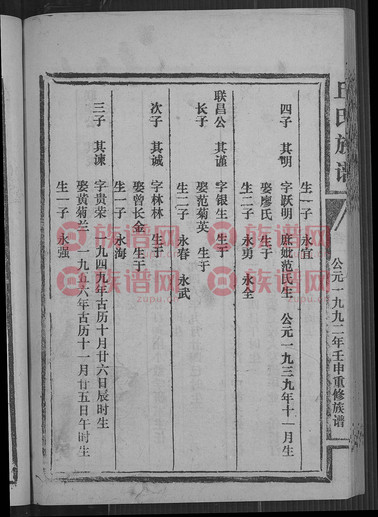 丘氏族谱
公元一九九二年壬申重修族谱
生一子 永宜
四子 其明 字跃明 庶妣范氏生 公元一九三九年十一月生
娶廖氏 生于
生二子 永勇 永全
联昌公 其谨 字银生 生于
长子 娶范菊英 生于
生二子 永春 永武
次子 其诚 字林林 生于
娶曾长金 生于
生一子 永海
三子 其谏 字贵荣 一九四九年古历十月廿六日辰时生
娶黄菊兰 一九五六年古历十一月廿五日午时生
生一子 永强
族谱网
zupu.cn
族谱网
zupu.cn
族谱网
zupu.cn
族谱网
zupu.cn